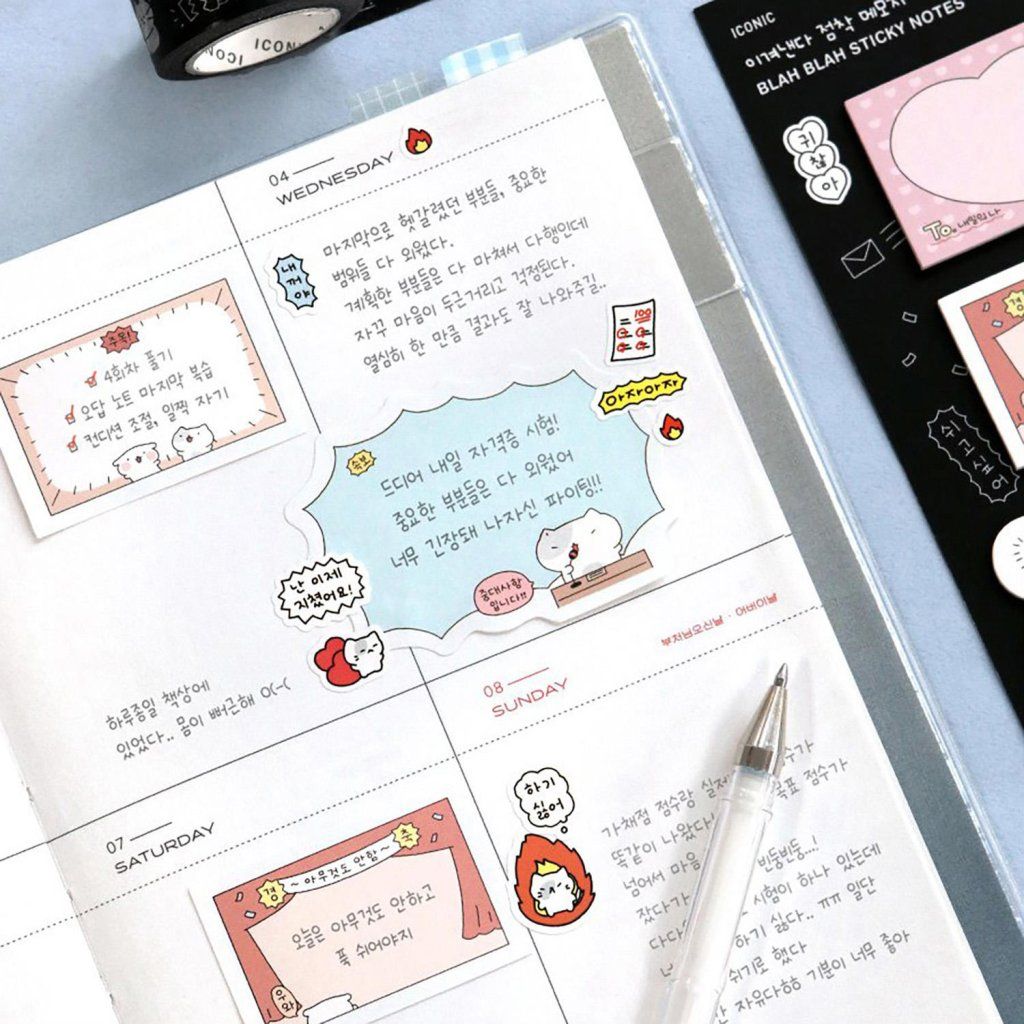 ICONIC
ICONIC
이겨낸다 점착 메모지
BLAH BLAH STICKY NOTES
귀
찮
아
To. 내일의 나
쉬
고
싶
어
04
WEDNESDAY
내
꺼
야
마지막으로 헷갈렸던 부분들, 중요한
범위들 다 외웠다.
계획한 부분들은 다 마쳐서 다행인데
자꾸 마음이 두근거리고 걱정된다.
열심히 한 만큼 결과도 잘 나와주길..
100
아자아자
주목!
4회차 풀기
오답 노트 마지막 복습
컨디션 조절, 일찍 자기
속보
드디어 내일 자격증 시험!
중요한 부분들은 다 외웠어
너무 긴장돼 나자신 파이팅!!
중대사항
입니다!!
난 이제
지쳤어요!
하루종일 책상에
있었다.. 몸이 뻐근해 O(-(
부처님오신날 · 어버이날
08
SUNDAY
하기
싫어
가채점 점수랑 실제 수가
똑같이 나왔다! 목표 점수가
넘어서 마음 빈둥빈둥..!
잤다가 시험이 하나 있는데
다 하기 싫다.. ㅠㅠ 일단
쉬기로 했다
자유다ㅎㅎ 기분이 너무 좋아
07
SATURDAY
경 ~ 아무것도 안함 ~ 축
오늘은 아무것도 안하고
푹 쉬어야지
우와
경